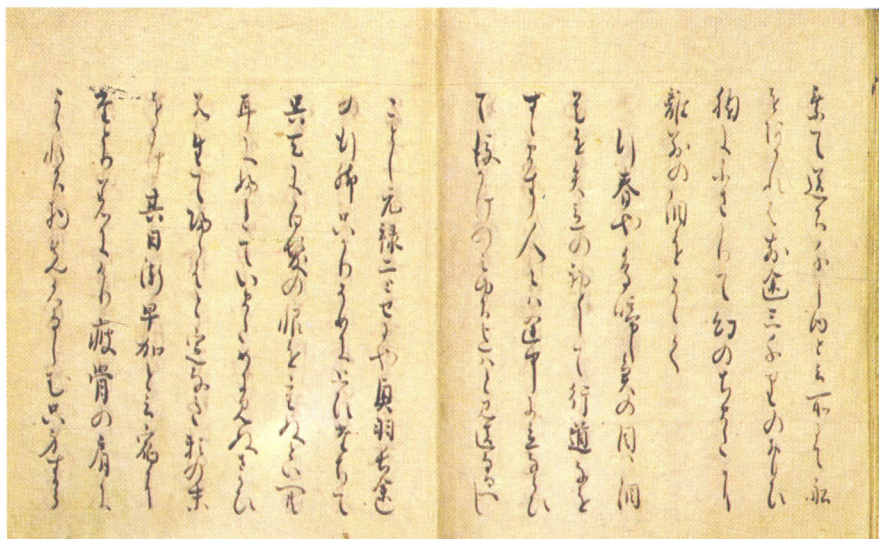 乗て送る千しゆと云所にて船
をあかれは前途三千里のおもひ
胸にふさかりて幻のちまたに
離別の泪をそゝく
行春や鳥啼魚の目は泪
是を矢立の初として行道なを
すゝます人々は途中に立ならひ
て後かけのみゆる迄はと見送なるへし
ことし元禄二とせにや奥羽長途
の行脚只かりそめに思ひたちて
呉天に白髪の恨を重ぬといへ共
耳にふれていまために見ぬさかひ
若生て帰らはと定なき頼の末
をかけ其日漸早加と云宿に
たとり着にけり痩骨の肩に
かゝれる物先くるしむ只身すから